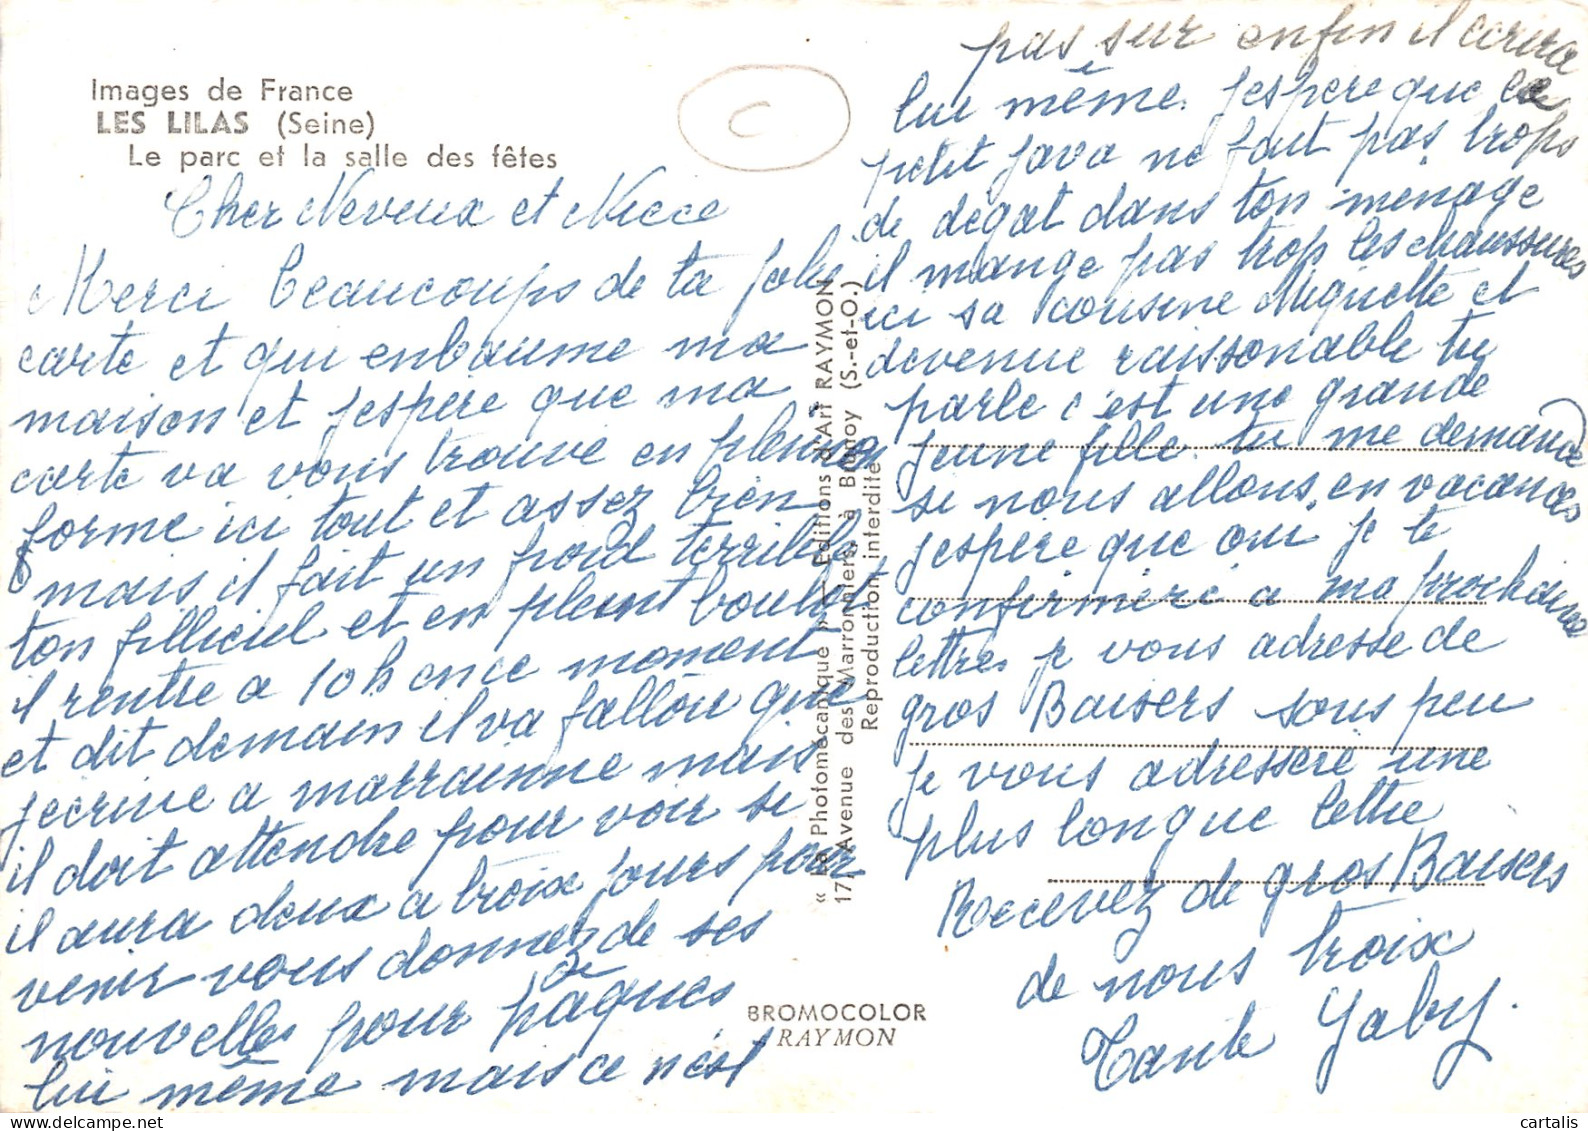 Images de France
LES LILAS (Seine)
Le parc et la salle des fêtes
Cher Neveux et Niece
Merci beaucoups de ta jolie
carte et qui enbaume ma
maison et j'espere que ma
carte va vous trouve en pleine
forme ici tout et assez bien
mais il fait un froid terrible
ton filliciel et en pleint boulot
il rentre a 10h ence moment
et dit demain il va falloir que
jecrive a marrainne mais
il doit attendre pour voir si
il aura deux a troix jours pour
venir vous donnez de ses
nouvelles pour pâques
lui même mais ce n'est
pas sur enfin il ecrira
lui même. Jespere que ce
petit java ne fait pas trops
de degat dans ton menage
il mange pas trop les chaussures
ici sa cousine Miquette et
devenue raissonable tu
parle c'est une grande
jeune fille. tu me demande
si nous allons en vacances
jespere que oui je te
confirmere a ma prochaine
lettre je vous adresse de
gros Baisers sous peu
je vous adressere une
plus longue lettre
Recevez de gros Baisers
de nous troix
Tante Gaby.
« La Photomécanique » - Editions d'Art RAYMON
17, Avenue des Marronniers, à Brunoy (S.-et-O.)
Reproduction interdite
BROMOCOLOR
RAYMON
C
cartalis